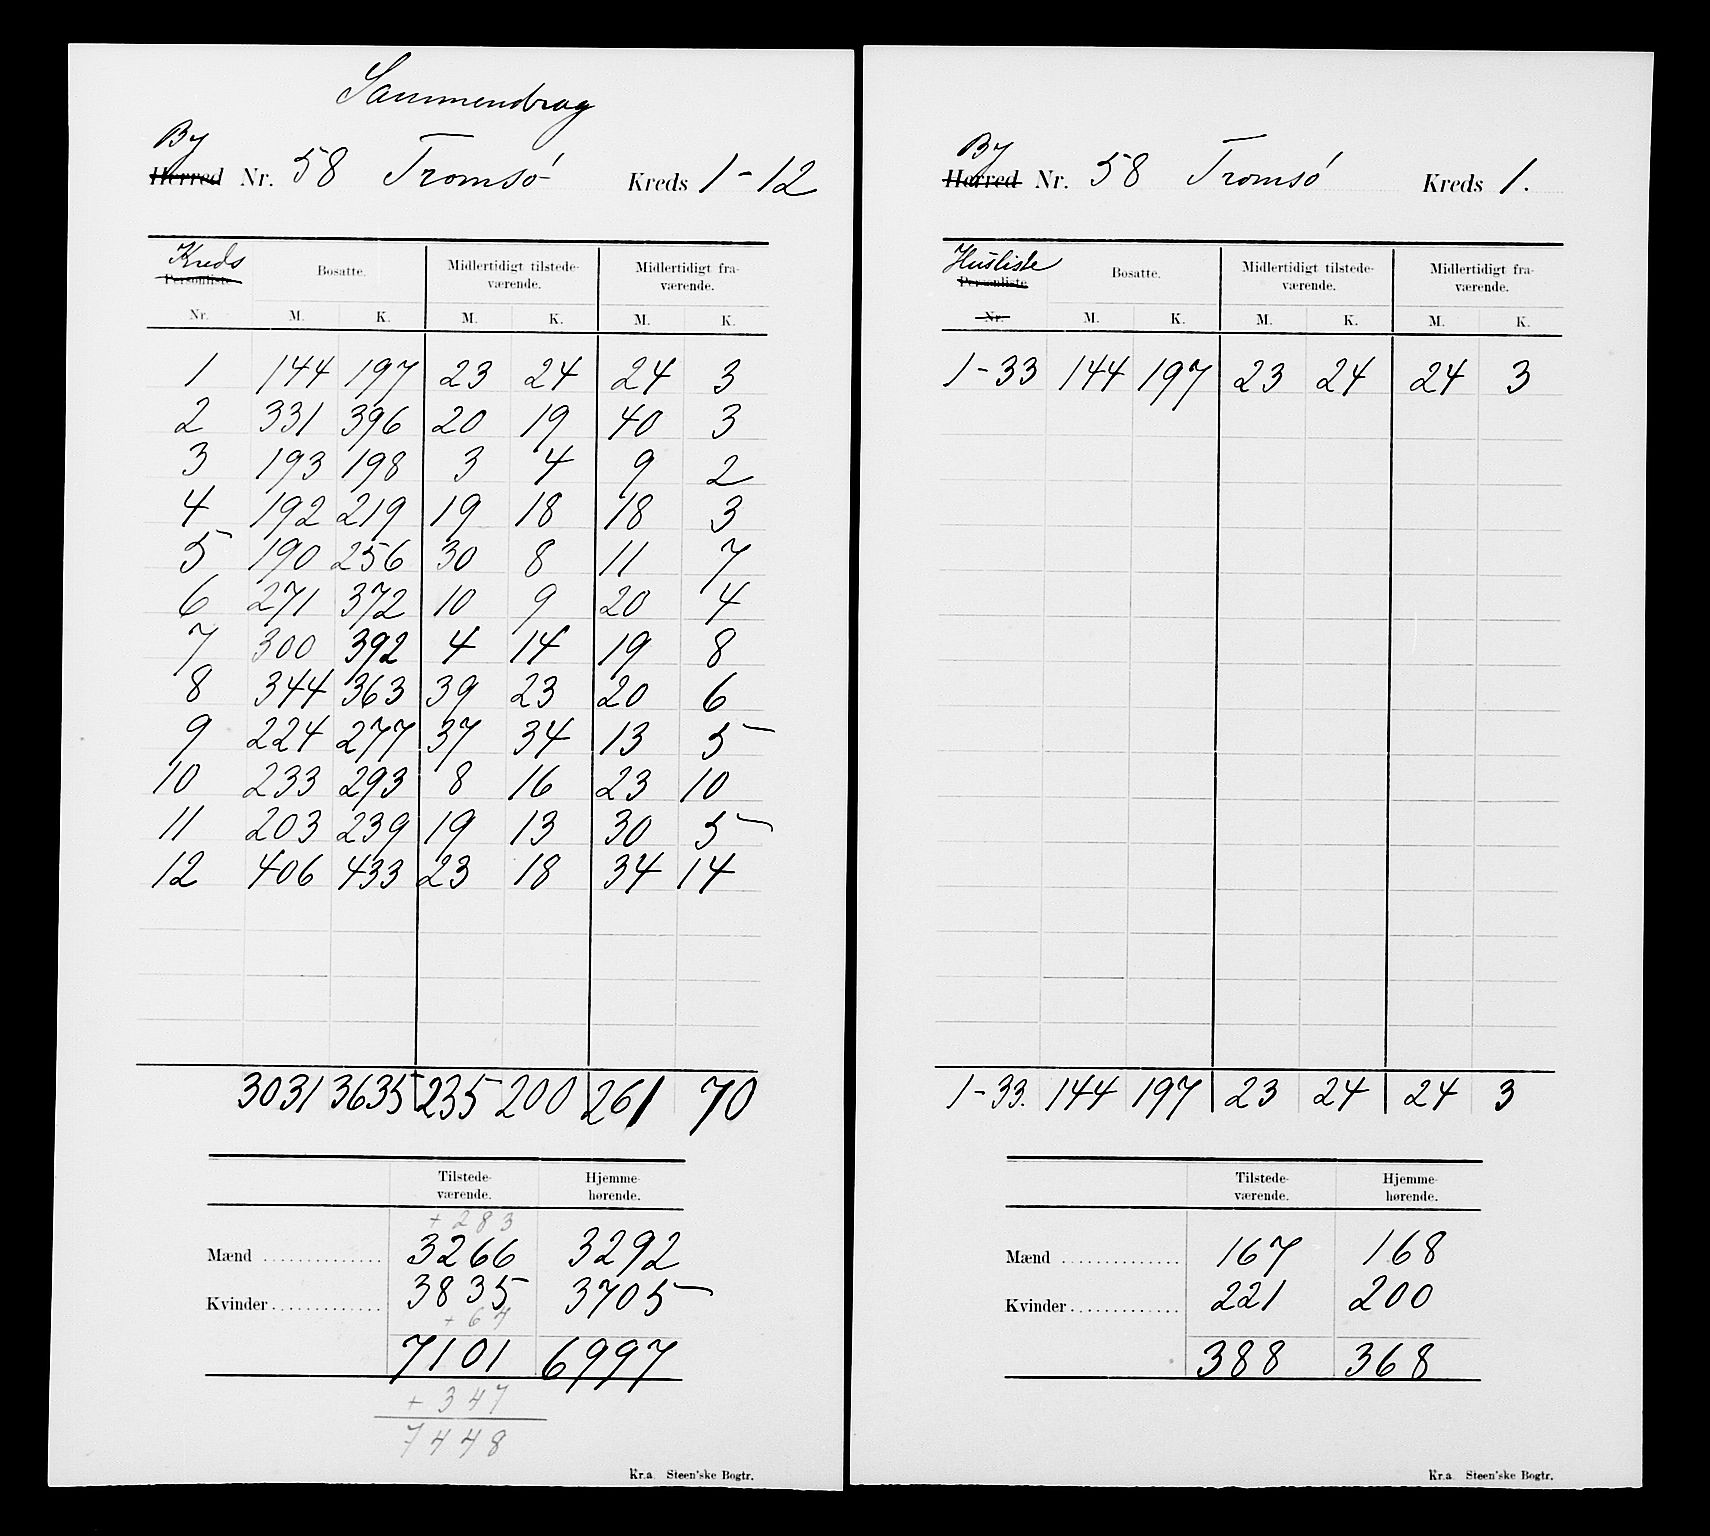 Sammendrag
By
Herred Nr. 58 Tromsø Kreds 1-12
Kreds
Personliste Bosatte. Midlertidigt tilstede- Midlertidigt fra-
værende. værende.
Nr. M. K. M. K. M. K.
1 144 197 23 24 24 3
2 331 396 20 19 40 3
3 193 198 3 4 9 2
4 192 219 19 18 18 3
5 190 256 30 8 11 7
6 271 372 10 9 20 4
7 300 392 4 14 19 8
8 344 363 39 23 20 6
9 224 277 37 34 13 5
10 233 293 8 16 23 10
11 203 239 19 13 30 5
12 406 433 23 18 34 14
3031 3635 235 200 261 70
Tilstede- Hjemme-
værende. hørende.
+ 283
Mænd .............. 3266 3292
Kvinder ............. 3835 3705
+ 64
7101 6997
+ 347
7448
Kr.a Steen'ske Bogtr.
By
Herred Nr. 58 Tromsø Kreds 1.
Husliste
Personliste Bosatte. Midlertidigt tilstede- Midlertidigt fra-
værende. værende.
Nr. M. K. M. K. M. K.
1-33 144 197 23 24 24 3
1-33. 144 197 23 24 24 3
Tilstede- Hjemme-
værende. hørende.
Mænd .............. 167 168
Kvinder ............. 221 200
388 368
Kr.a Steen'ske Bogtr.